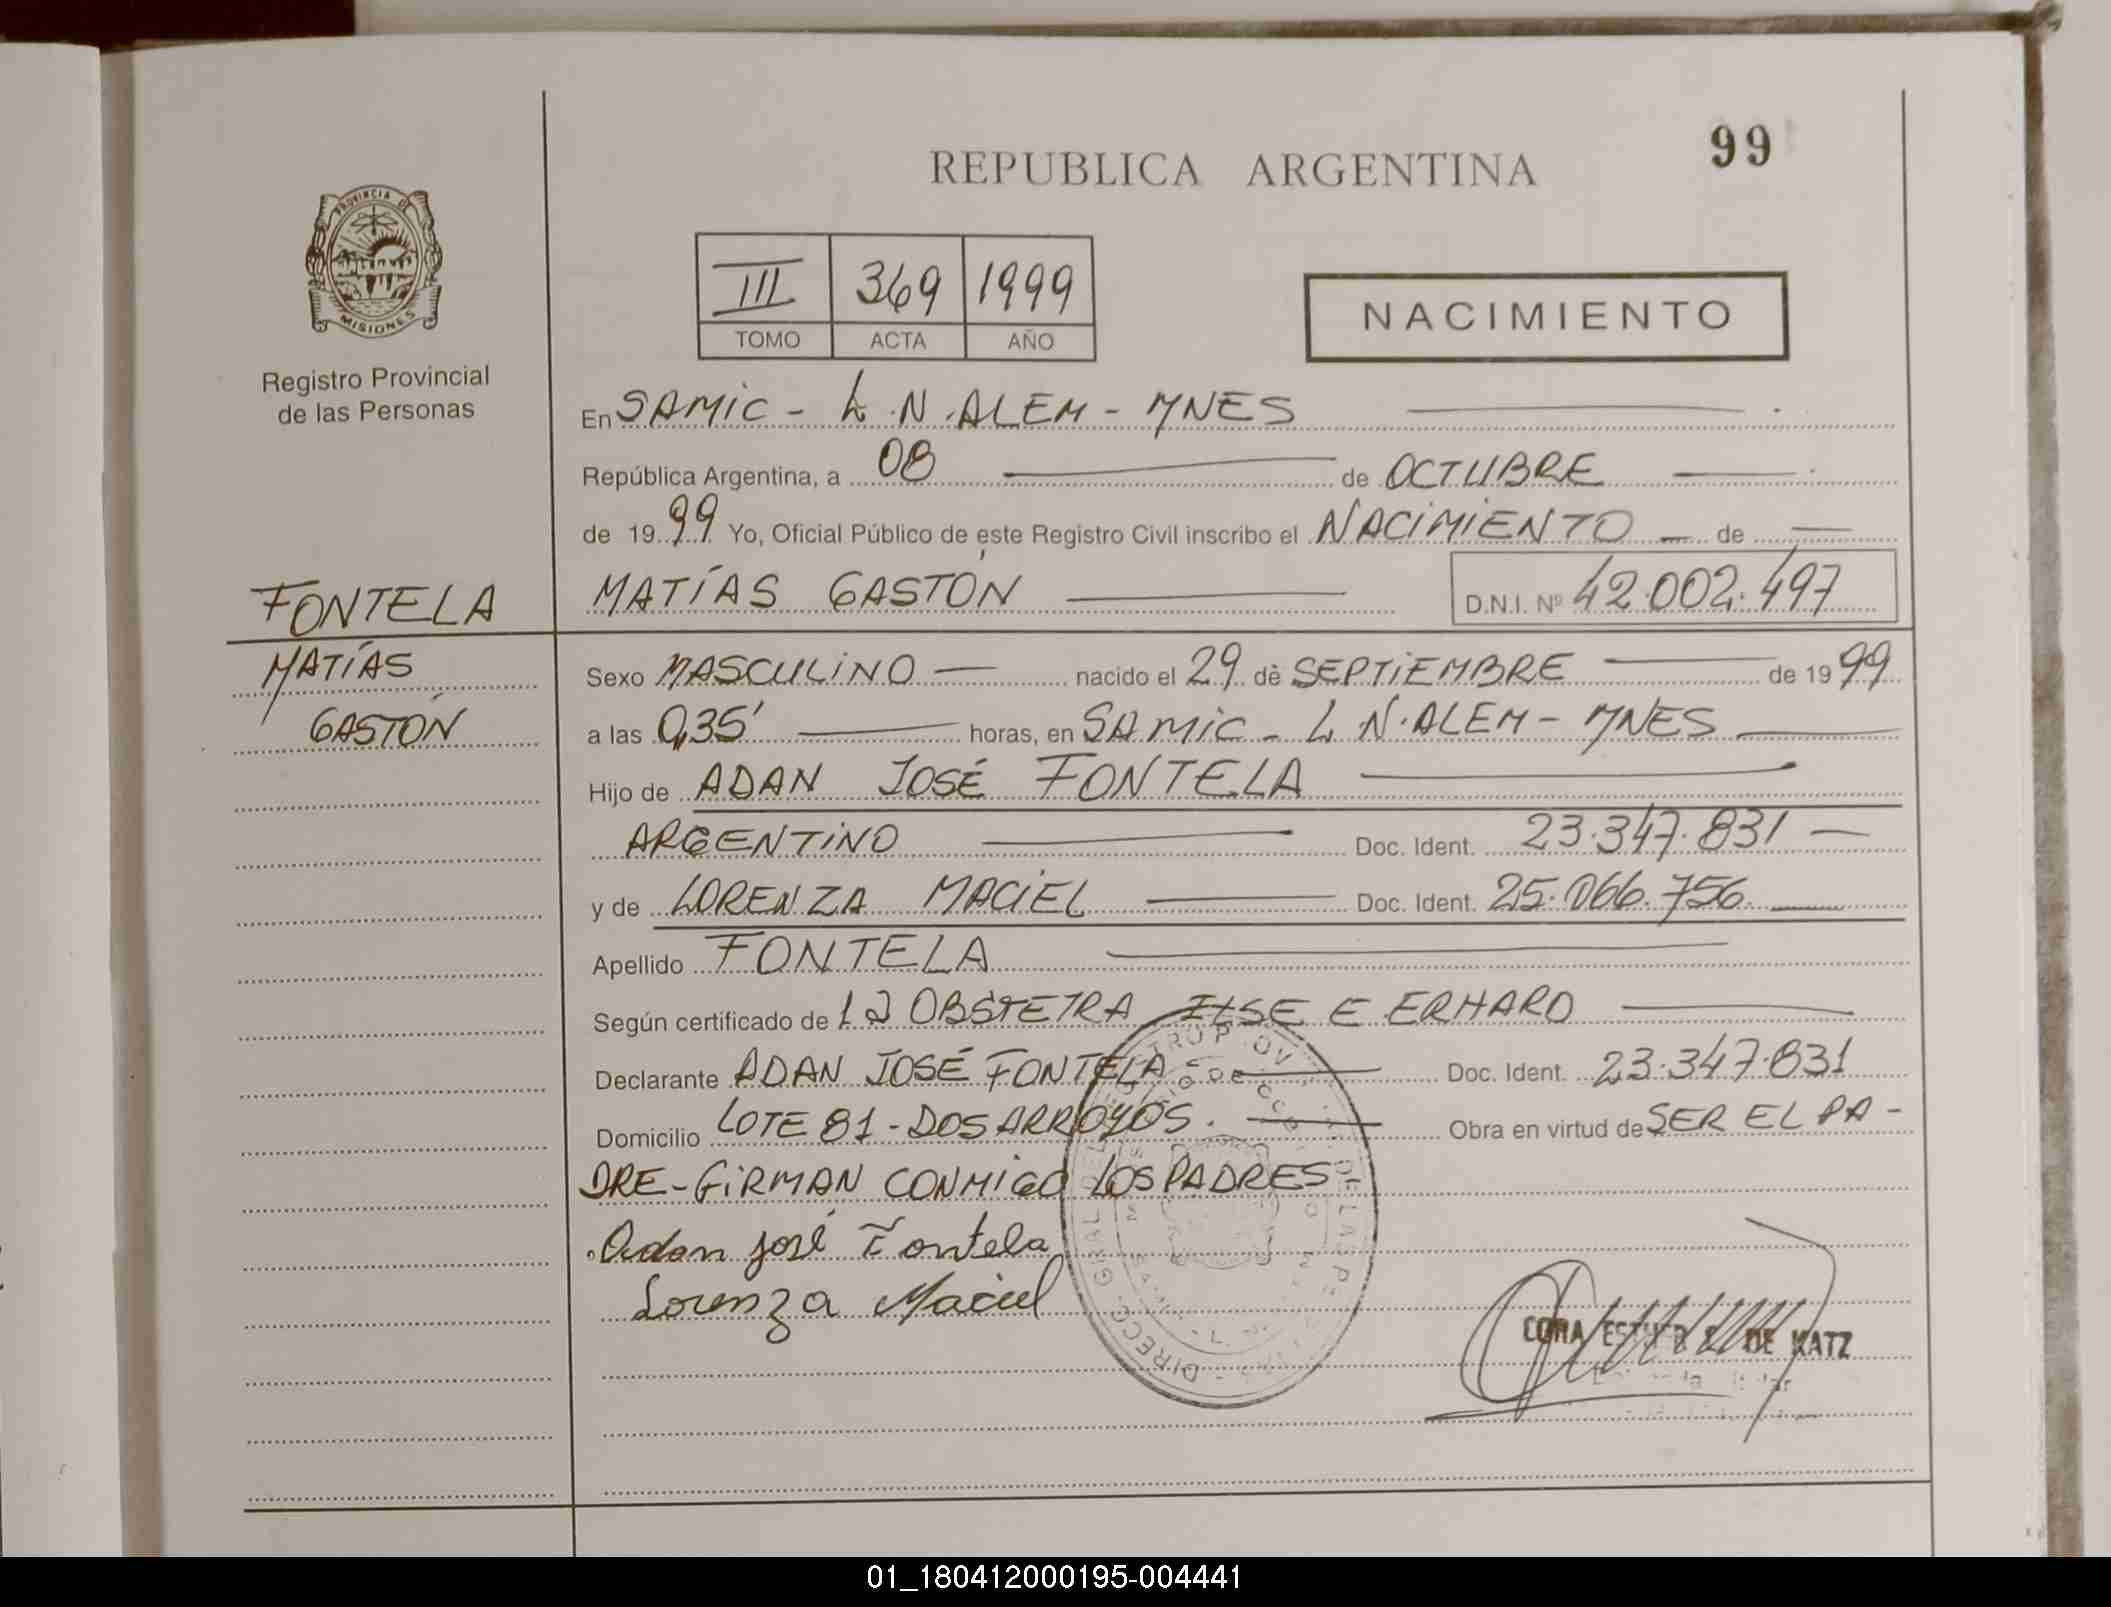 99
REPUBLICA ARGENTINA
PROVINCIA DE
MISIONES
Registro Provincial
de las Personas
III 369 1999
TOMO ACTA AÑO
NACIMIENTO
En SAMIC - L.N.ALEM - MNES
República Argentina, a 08 de OCTUBRE
de 1999 Yo, Oficial Público de este Registro Civil inscribo el NACIMIENTO de
FONTELA
MATÍAS
GASTÓN
MATÍAS GASTÓN D.N.I. Nº 42.002.497
Sexo MASCULINO nacido el 29 de SEPTIEMBRE de 1999
a las 0,35' horas, en SAMIC - L N. ALEM - MNES
Hijo de ADAN JOSÉ FONTELA
ARGENTINO Doc. Ident. 23.347.831
y de LORENZA MACIEL Doc. Ident. 25.066.756
Apellido FONTELA
Según certificado de LA OBSTETRA ILSE E ERHARD
Declarante ADAN JOSÉ FONTELA Doc. Ident. 23.347.831
Domicilio LOTE 81 - DOS ARROYOS. Obra en virtud de SER EL PA-
DRE - FIRMAN CONMIGO LOS PADRES-
Adan José Fontela
Lorenza Maciel
CORA ESTHER DE KATZ
01_180412000195-004441